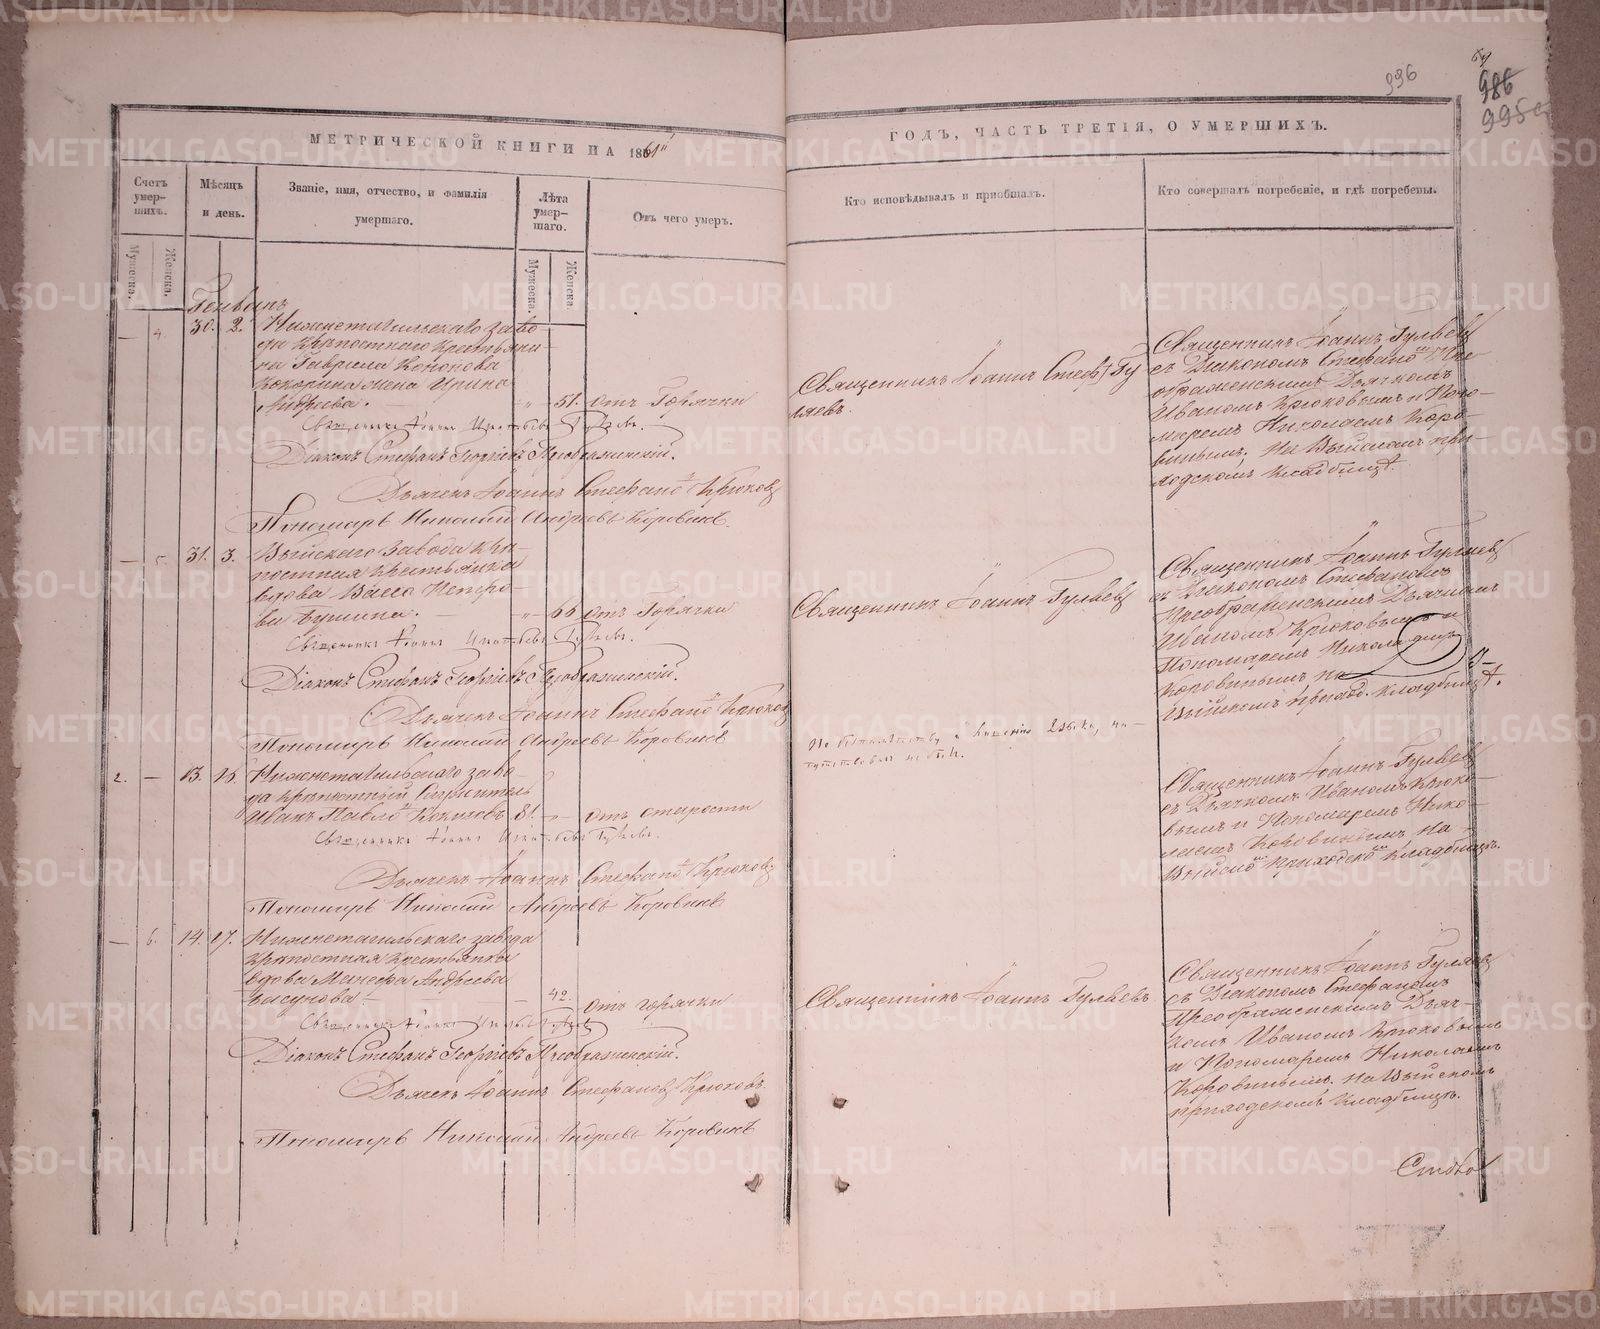 996
986
МЕТРИЧЕСКОЙ КНИГИ НА 1861й
ГОДЪ, ЧАСТЬ ТРЕТІЯ, О УМЕРШИХЪ.
Счетъ умер-шихъ.
Мѣсяцъ и день.
Званіе, имя, отчество, и фамилія умершаго.
Лѣта умер-шаго.
Отъ чего умеръ.
Кто исповѣдывалъ и пріобщалъ.
Кто совершалъ погребеніе, и гдѣ погребены.
Мужеска.
Женска.
Мужеска.
Женска
Генварь
— 4. 30. 2. Нижнетагильскаго заво-
да крѣпостнаго крестьяни-
на Гаврила Кононова
Кокорина жена Ирина
Андреева. — „ — 51. отъ Горячки
Священникъ Іоаннъ Игнатьевъ Гуляевъ.
Діаконъ Стефанъ Георгіевъ Преображенскій.
Дьячекъ Іоаннъ Стефановъ Крюковъ
Пономарь Николай Андреевъ Коровинъ.
Священникъ Іоаннъ Стеф. Гу-
ляевъ.
Священникъ Іоаннъ Гуляевъ
съ Діакономъ Стефаномъ Пре-
ображенскимъ Дьячкомъ
Иваномъ Крюковымъ и Поно-
маремъ Николаемъ Коро-
винымъ. На Выйскомъ при-
ходскомъ кладбищѣ.
— 5 31. 3. Выйскаго завода крѣ-
постная крестьянка
вдова Васса Петро-
ва — „ 66 отъ Горячки
Священникъ Іоаннъ Игнатьевъ Гуляевъ.
Діаконъ Стефанъ Георгіевъ Преображенскій.
Дьячекъ Іоаннъ Стефановъ Крюковъ
Пономарь Николай Андреевъ Коровинъ
Священникъ Іоаннъ Гуляевъ
Священникъ Іоаннъ Гуляевъ
съ Діакономъ Стефаномъ
Преображенскимъ Дьячкомъ
Иваномъ Крюковымъ и
Пономаремъ Николаемъ
Коровинымъ на
Выйскомъ приход. кладбищѣ.
2. — 13. 15. Нижнетагильскаго заво-
да крѣпостный служитель
Иванъ Павловъ 81. „ — отъ старости
Священникъ Іоаннъ Игнатьевъ Гуляевъ.
Дьячекъ Іоаннъ Стефановъ Крюковъ
Пономарь Николай Андреевъ Коровинъ
По безпамятству и лишенію языка, на-
путствованъ не былъ.
Священникъ Іоаннъ Гуляевъ
съ Дьячкомъ Иваномъ Крюко-
вымъ и Пономаремъ Нико-
лаемъ Коровинымъ на
Выйскомъ приходскомъ кладбищѣ.
— 6. 14. 17. Нижнетагильскаго завода
крѣпостная крестьянка
вдова Манефа Андреева
— 42. отъ горячки
Священникъ Іоаннъ Игнатьевъ Гуляевъ
Діаконъ Стефанъ Георгіевъ Преображенскій.
Дьячекъ Іоаннъ Стефановъ Крюковъ.
Пономарь Николай Андреевъ Коровинъ
Священникъ Іоаннъ Гуляевъ
Священникъ Іоаннъ Гуляевъ
съ Діакономъ Стефаномъ
Преображенскимъ Дьяч-
комъ Иваномъ Крюковымъ
и Пономаремъ Николаемъ
Коровинымъ. На Выйскомъ
приходскомъ кладбищѣ.
METRIKI.GASO-URAL.RU